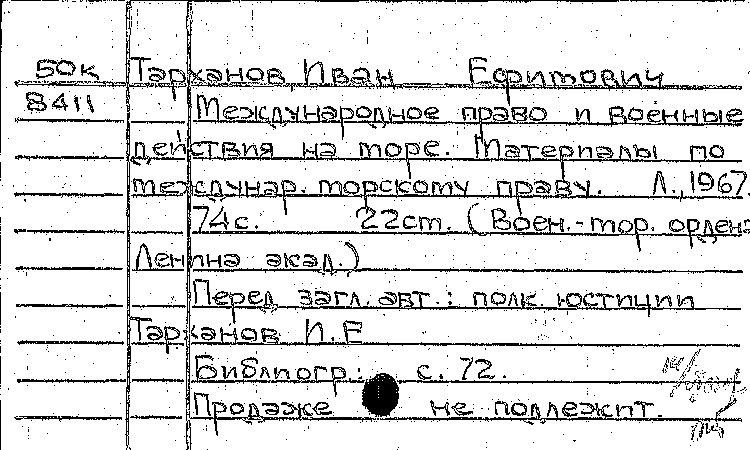 50К Тарханов Иван Ефимович
8411 Международное право и военные
действия на море. Материалы по
междунар. морскому праву. Л., 1967.
74с. 22см. (Воен.-мор. ордена
Ленина акад.)
Перед загл. авт.: полк. юстиции
Тарханов И.Е
Библиогр.: с. 72.
Продаже не подлежит.